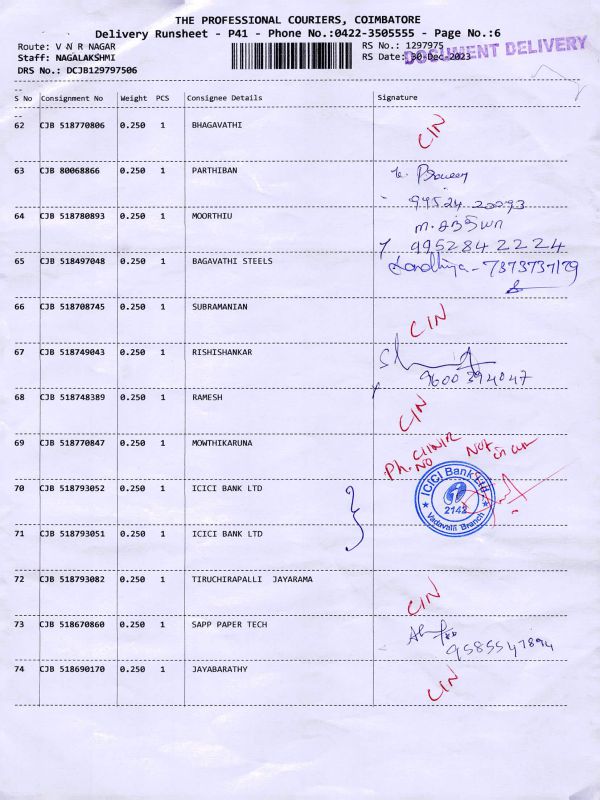 THE PROFESSIONAL COURIERS, COIMBATORE
Delivery Runsheet - P41 - Phone No.:0422-3505555 - Page No.:6
Route: V N R NAGAR
RS No.: 1297975
DOCUMENT DELIVERY
Staff: NAGALAKSHMI
RS Date: 30-Dec-2023
DRS No.: DCJB129797506
S No Consignment No Weight PCS Consignee Details Signature
62 CJB 518770806 0.250 1 BHAGAVATHI CIN
63 CJB 80068866 0.250 1 PARTHIBAN
99524 20093
64 CJB 518780893 0.250 1 MOORTHIU
9952842224
65 CJB 518497048 0.250 1 BAGAVATHI STEELS 7373737179
66 CJB 518708745 0.250 1 SUBRAMANIAN CIN
67 CJB 518749043 0.250 1 RISHISHANKAR
9600394047
68 CJB 518748389 0.250 1 RAMESH CIN
69 CJB 518770847 0.250 1 MOWTHIKARUNA Ph. NO Not
70 CJB 518793052 0.250 1 ICICI BANK LTD
ICICI Bank Ltd
2142
Vadavalli Branch
71 CJB 518793051 0.250 1 ICICI BANK LTD
72 CJB 518793082 0.250 1 TIRUCHIRAPALLI JAYARAMA CIN
73 CJB 518670860 0.250 1 SAPP PAPER TECH
9585547894
74 CJB 518690170 0.250 1 JAYABARATHY CIN